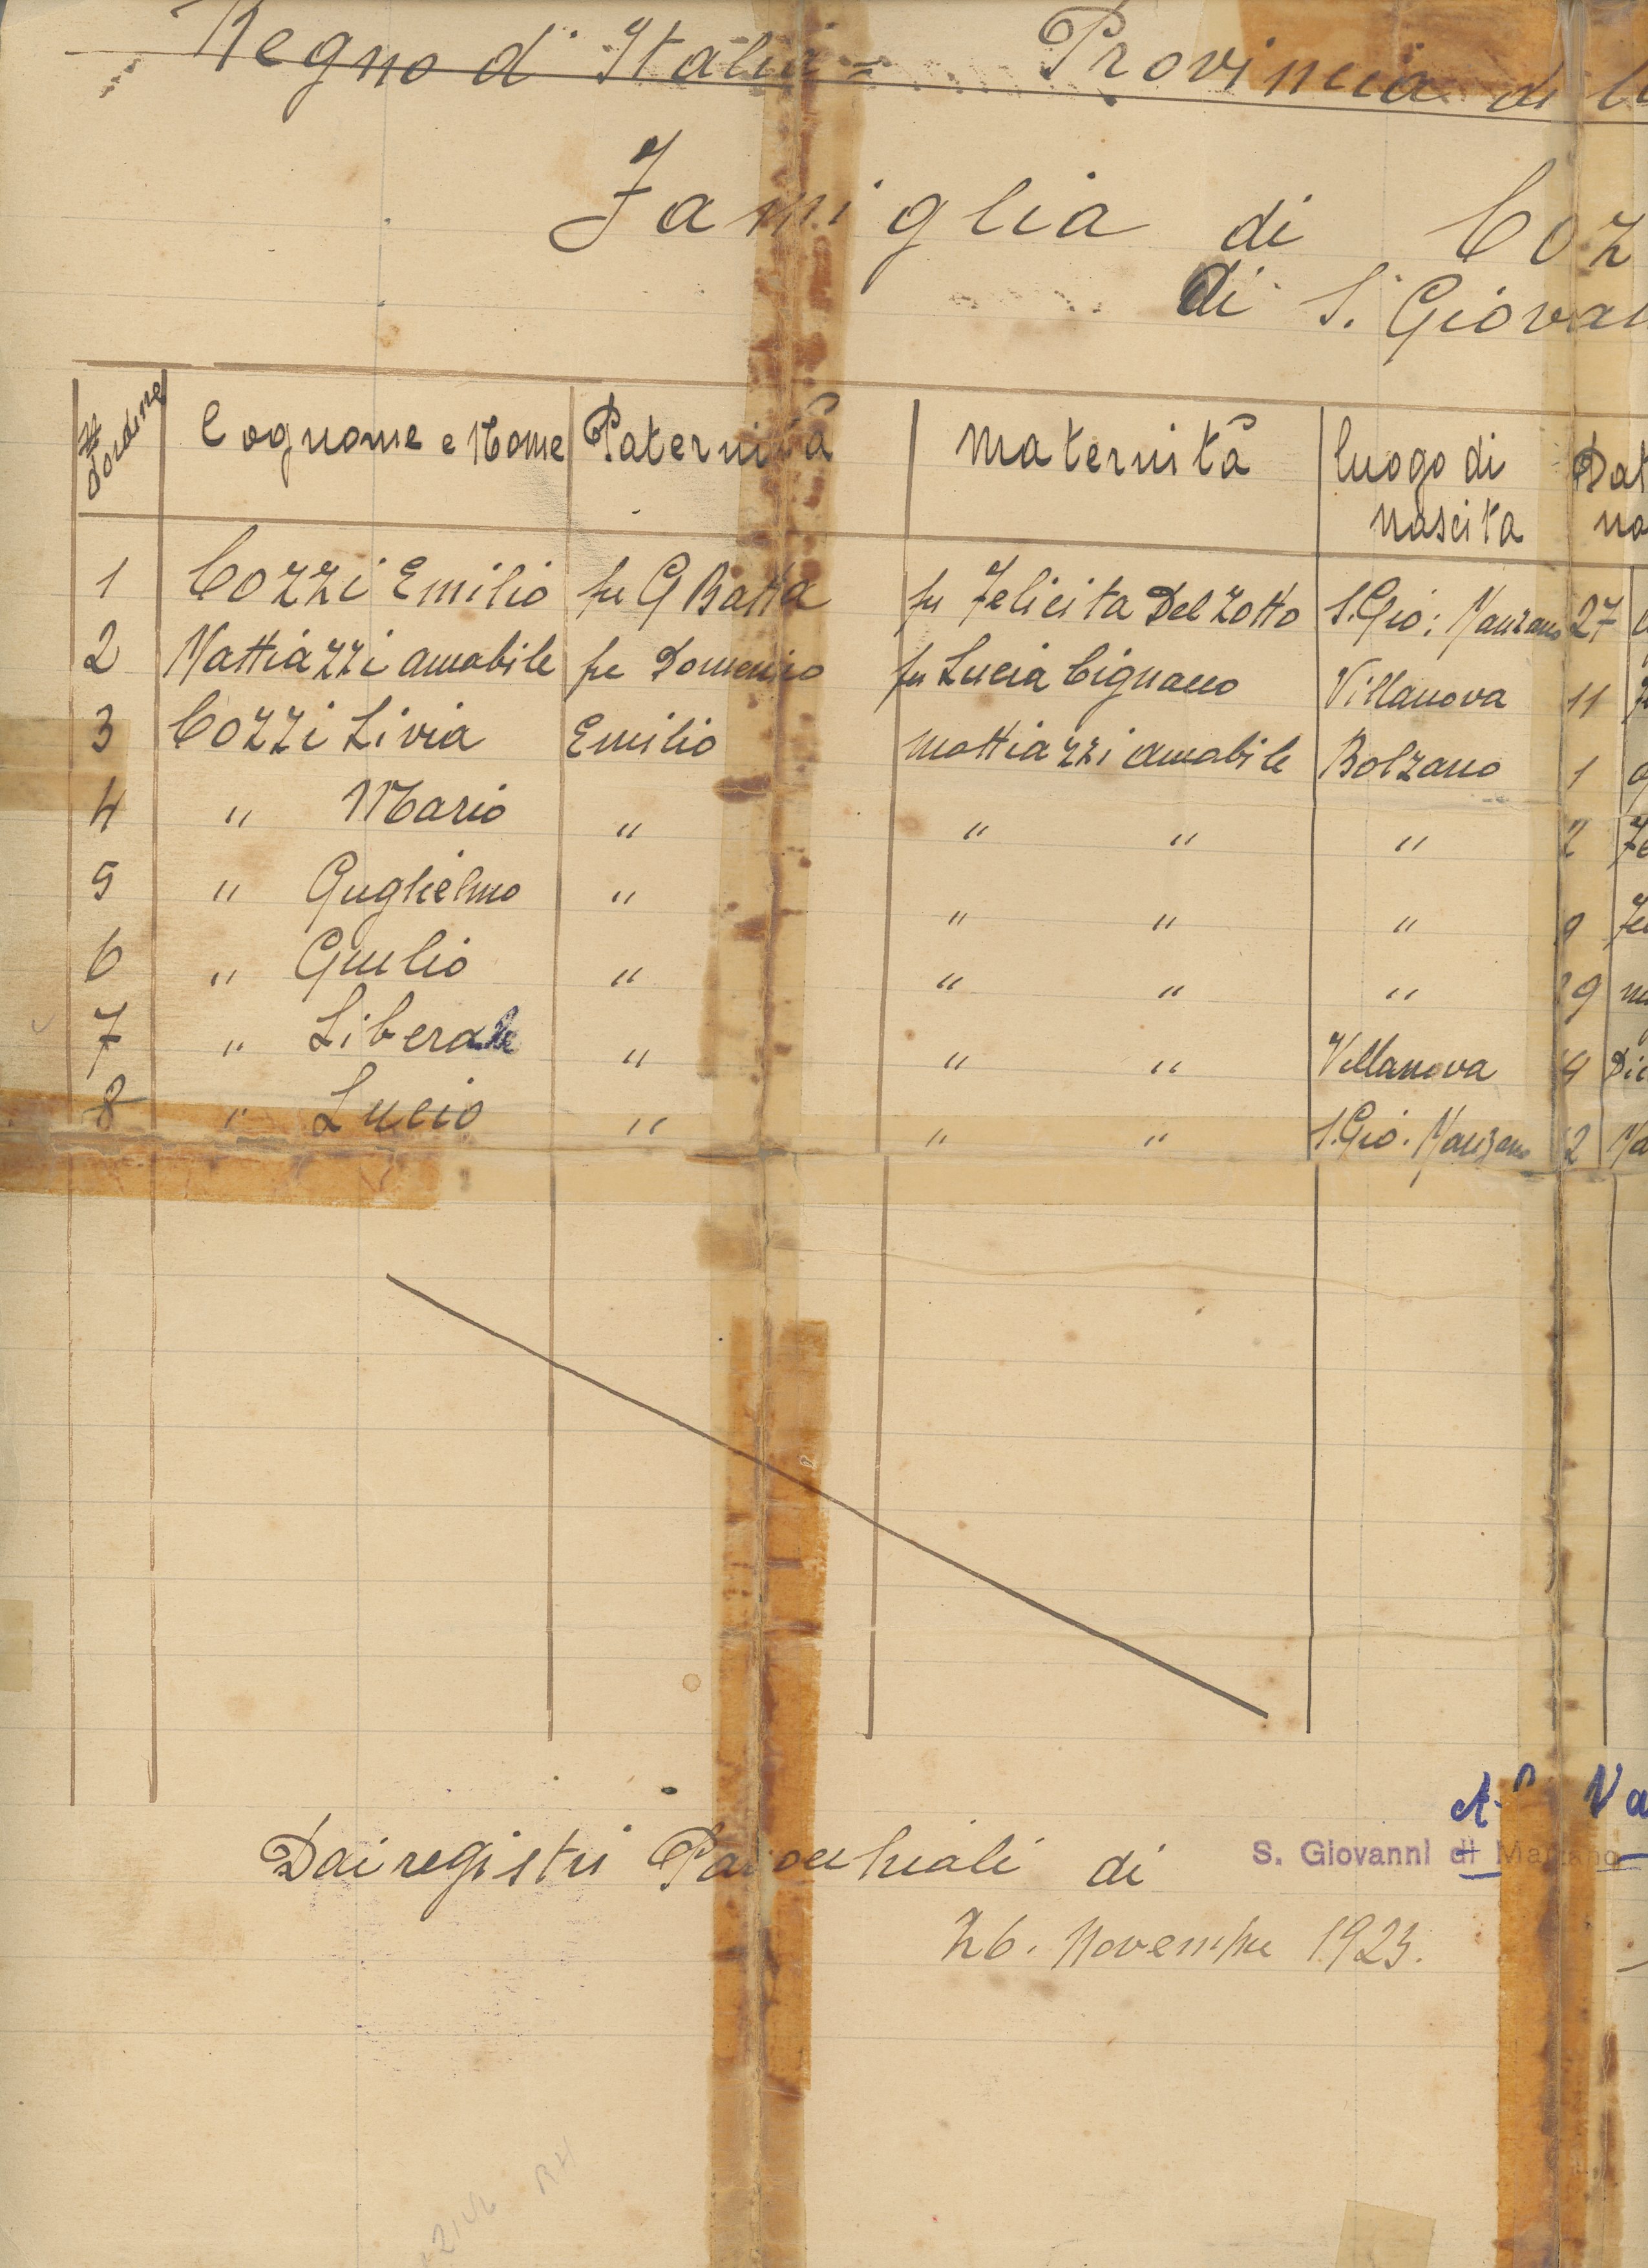 Regno d'Italia = Provincia di U
Famiglia di Coz
di S. Giovan
N. d'ordine Cognome e Nome Paternità Maternità luogo di nascita Dat na
1 Cozzi Emilio fu G Batta fu Felicita Del Zotto S. Gio: Manzano 27
2 Mattiazzi Amabile fu Domenico fu Lucia Cignacco Villanova 11
3 Cozzi Livia Emilio Mattiazzi Amabile Bolzano 1
4 " Mario " " " " 2 Fe
5 " Guglielmo " " " " 9 Fe
6 " Giulio " " " " 29 ma
7 " Liberale " " " Villanova 4 Dic
8 " Lucio " " " S. Gio. Manzano 2 Ma
Va
Dai registri Parocchiali di S. Giovanni di Manzano
26. Novembre 1923.